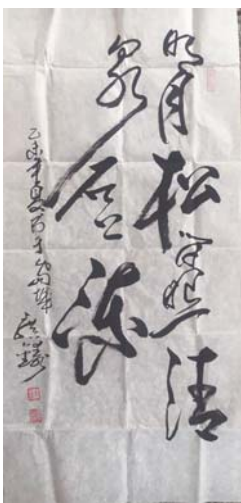 明月松间照清
泉石上流
乙未年夏月于